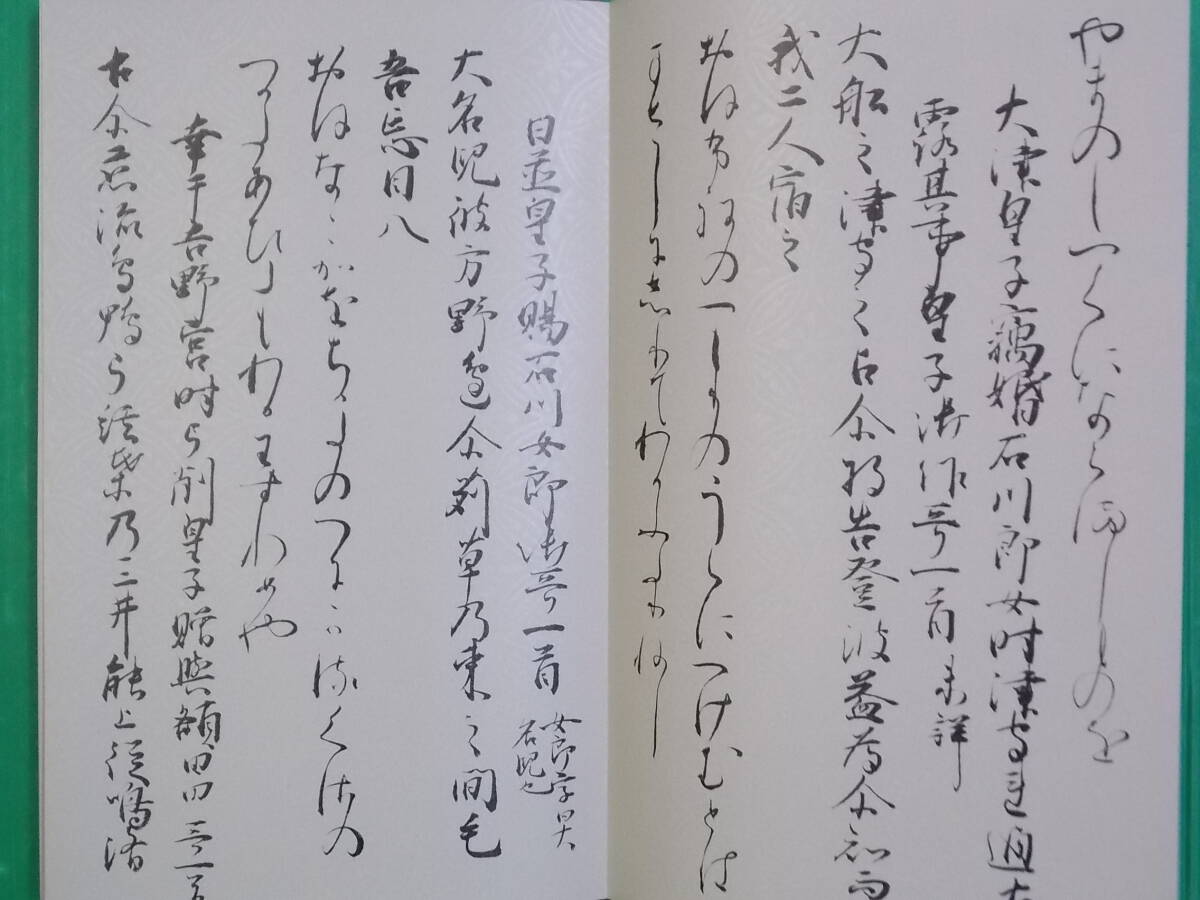 やまのしつくにならましものを
大津皇子竊婚石川郎女時津守連通占
露其事皇子御作哥一首未詳
大船之津守之占尓将告登波益為尓知而
我二人宿之
おほふねのつもりのうらにつけむとは
まさしに志りてわかふたりねし
日並皇子賜石川女郎御哥一首 女郎字曰大
名児也
大名児彼方野邊尓苅草乃束之間毛
吾忘目八
おほなこかをちかたのへにかるくさの
つかのあひたもわれわすれめや
幸于吉野宮時弓削皇子贈與額田王哥一首
古尓恋流鳥鴨弓弦葉乃三井能上従鳴渡